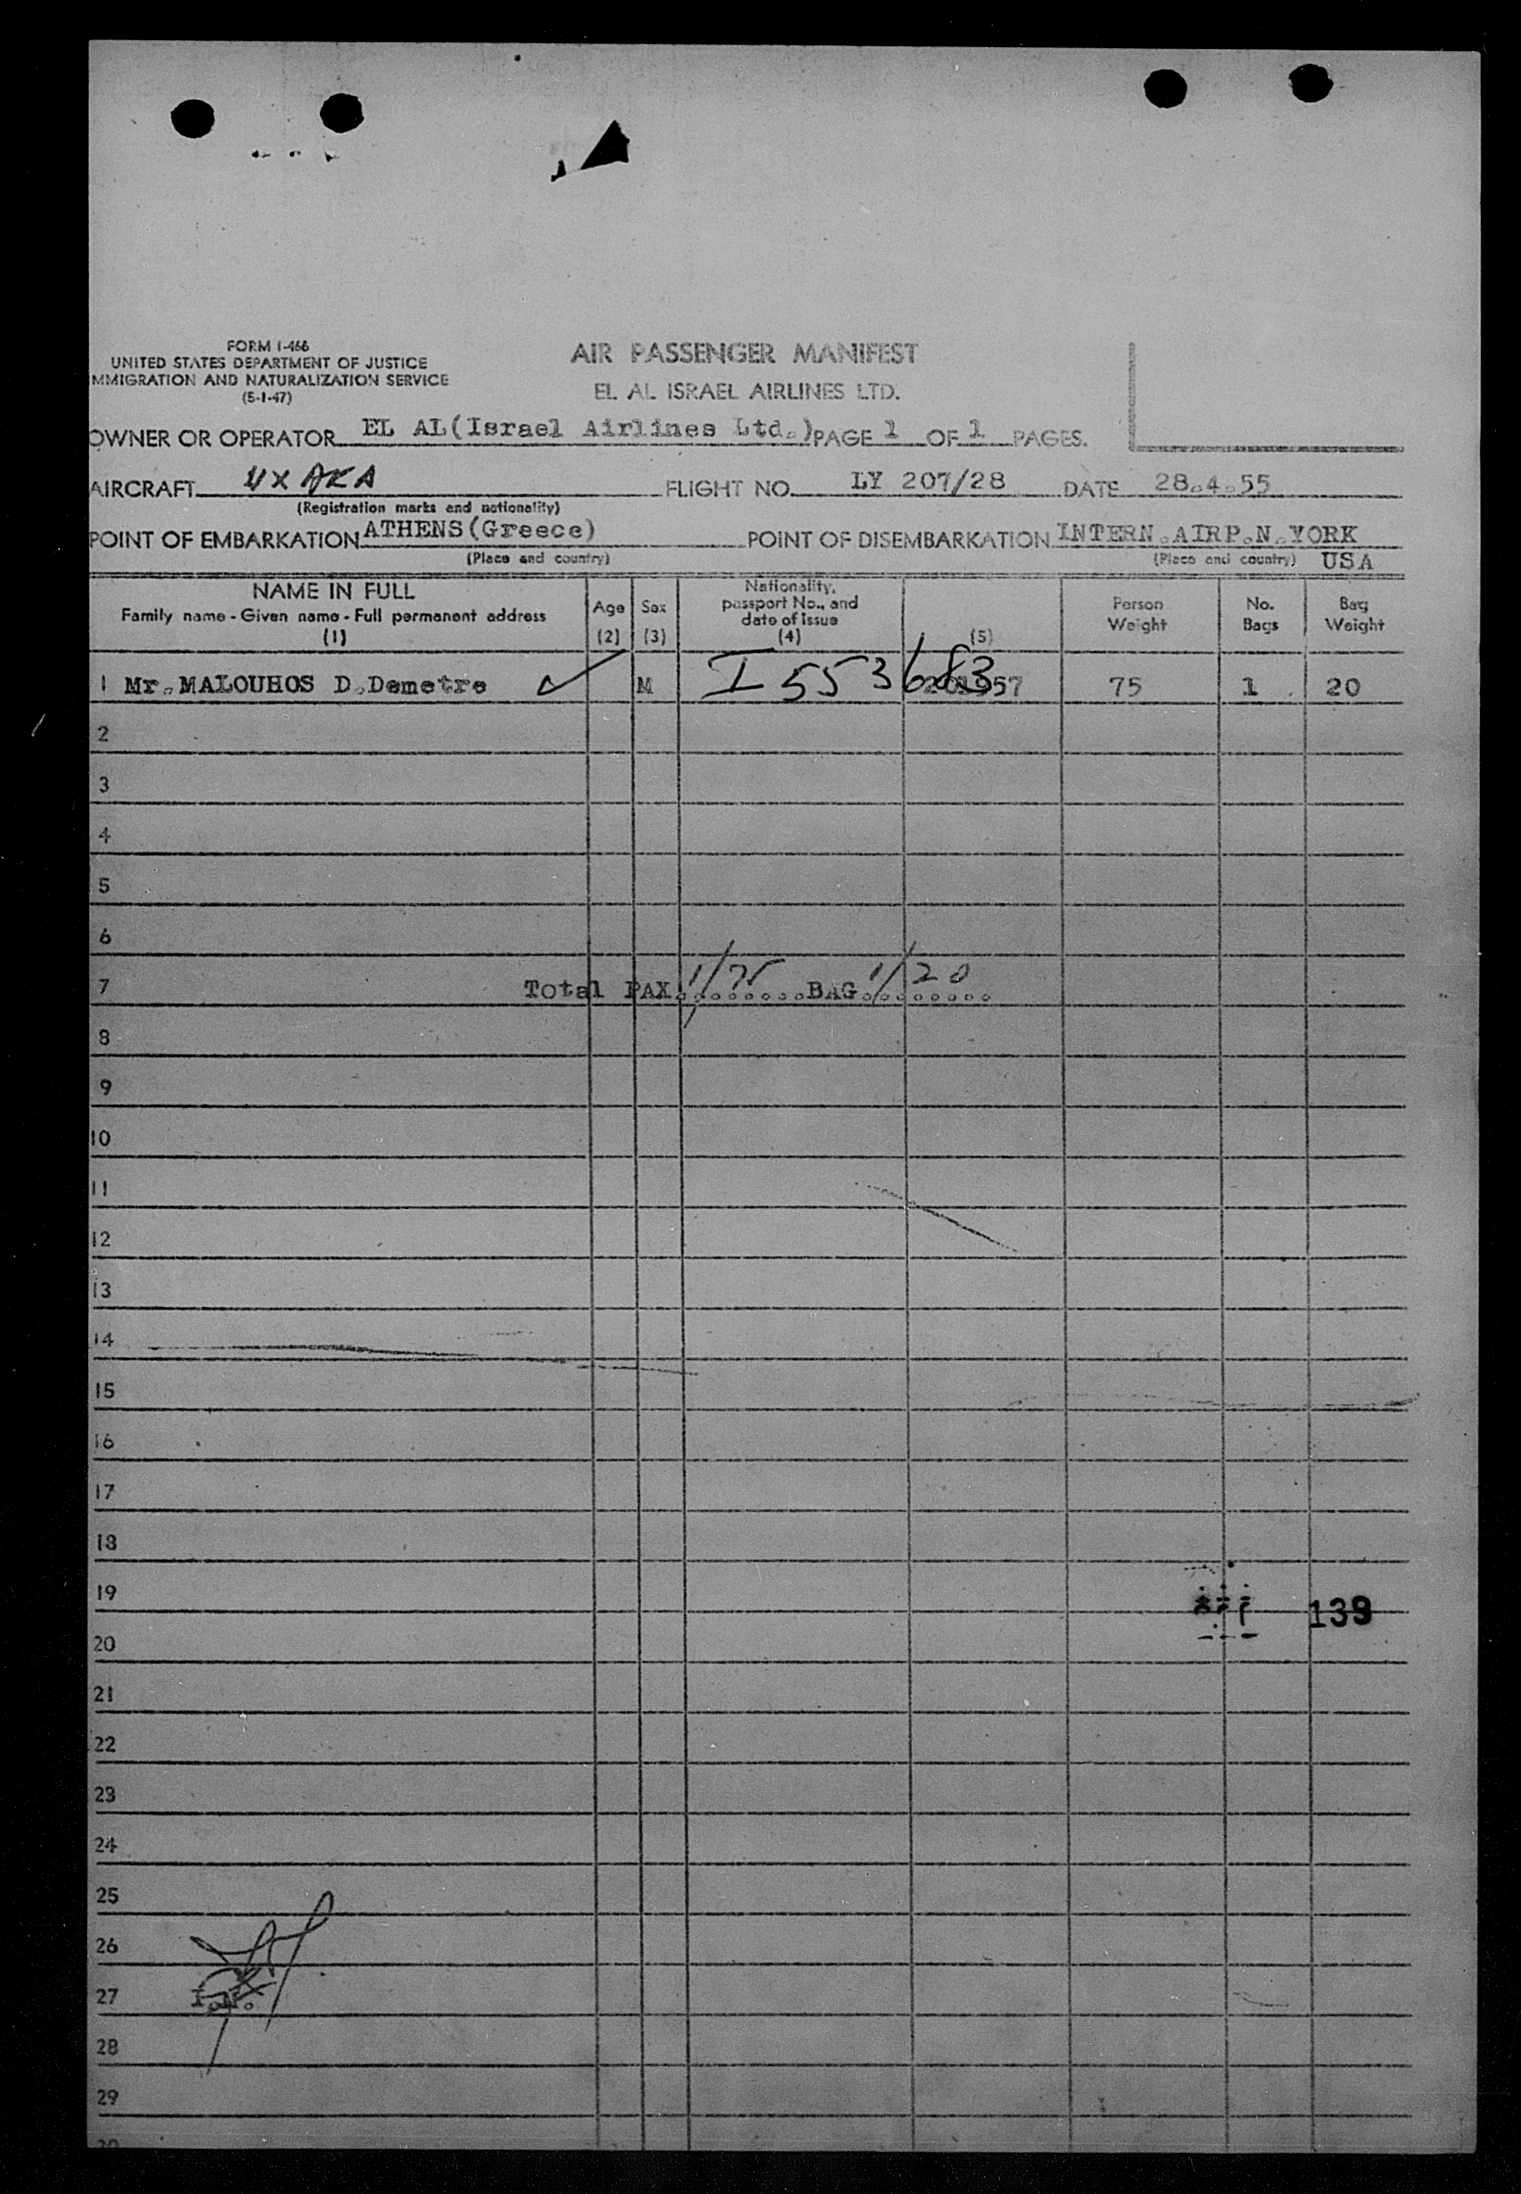 FORM I-466
UNITED STATES DEPARTMENT OF JUSTICE
MMIGRATION AND NATURALIZATION SERVICE
(5-1-47)
AIR PASSENGER MANIFEST
EL AL ISRAEL AIRLINES LTD.
OWNER OR OPERATOR EL AL(Israel Airlines Ltd.) PAGE 1 OF 1 PAGES.
AIRCRAFT 4X AKA FLIGHT NO. LY 207/28 DATE 28.4.55
(Registration marks and nationality)
POINT OF EMBARKATION ATHENS(Greece) POINT OF DISEMBARKATION INTERN.AIRP.N.YORK
(Place and country) (Place and country) USA
NAME IN FULL
Family name - Given name - Full permanent address
(1)
Age
(2)
Sex
(3)
Nationality,
passport No., and
date of issue
(4)
(5)
Person
Weight
No.
Bags
Bag
Weight
1 Mr.MALOUHOS D.Demetre M I 553683 75 1 20
2
3
4
5
6
7 Total PAX 1/75 BAG 1/20
8
9
10
11
12
13
14
15
16
17
18
19
139
20
21
22
23
24
25
26
27
28
29